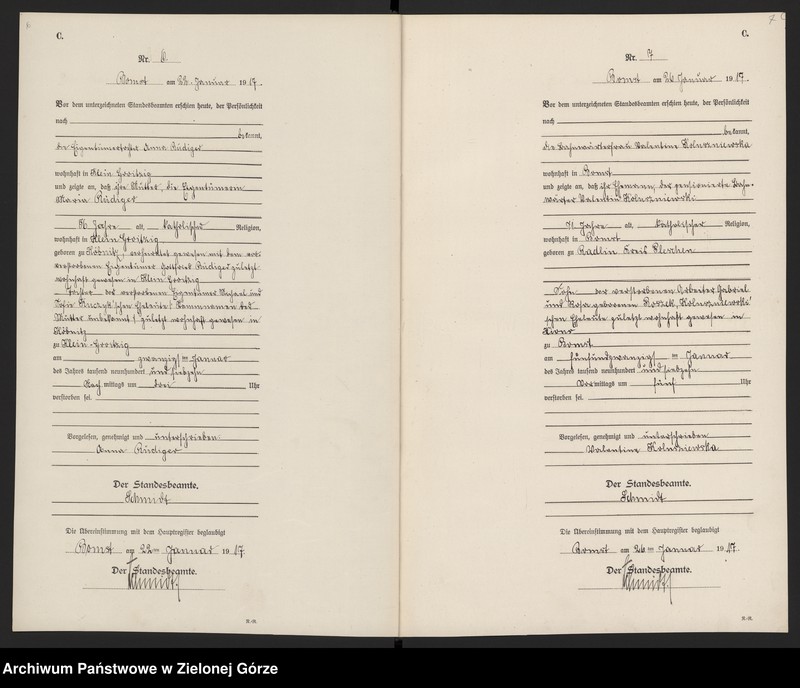 C.
Nr. 6.
Bomst am 22. Januar 1917.
Vor dem unterzeichneten Standesbeamten erschien heute, der Persönlichkeit
nach
bekannt,
die Eigentümertochter Anna Rüdiger
wohnhaft in Klein Groitzig
und zeigte an, daß ihre Mutter, die Eigentümerin
Maria Rüdiger
Jahre alt, katholischer Religion,
wohnhaft in Klein Groitzig
geboren zu Köbnitz, verheiratet gewesen mit dem
verstorbenen Eigentümer Gottfried Rüdiger zuletzt
wohnhaft gewesen in Klein Groitzig
Tochter der verstorbenen Eigentümer Michael und
Eheleute
Mutter unbekannt zuletzt wohnhaft gewesen in
Köbnitz
zu Klein-Groitzig
am zwanzigsten Januar
des Jahres tausend neunhundert und siebzehn
Nachmittags um drei Uhr
verstorben sei.
Vorgelesen, genehmigt und unterschrieben
Anna Rüdiger
Der Standesbeamte.
Schmidt
Die Übereinstimmung mit dem Hauptregister beglaubigt
Bomst am 22ten Januar 1917
Der Standesbeamte.
Schmidt
R.-R.
C.
Nr. 7
Bomst am 26 Januar 1917.
Vor dem unterzeichneten Standesbeamten erschien heute, der Persönlichkeit
nach
bekannt,
die Bahnwärterfrau Valentine
wohnhaft in Bomst
und zeigte an, daß ihr Ehemann, der pensionierte Bahn-
wärter Valentin
71 Jahre alt, katholischer Religion,
wohnhaft in Bomst
geboren zu Radlin Kreis Pleschen
Sohn der verstorbenen Arbeiter Gabriel
und Rosa geborenen
schen Eheleute zuletzt wohnhaft gewesen in
zu Bomst
am fünfundzwanzigsten Januar
des Jahres tausend neunhundert und siebzehn
Vormittags um fünf Uhr
verstorben sei.
Vorgelesen, genehmigt und unterschrieben
Valentine
Der Standesbeamte.
Schmidt
Die Übereinstimmung mit dem Hauptregister beglaubigt
Bomst am 26ten Januar 1917.
Der Standesbeamte.
Schmidt
R.-R.
Archiwum Państwowe w Zielonej Górze